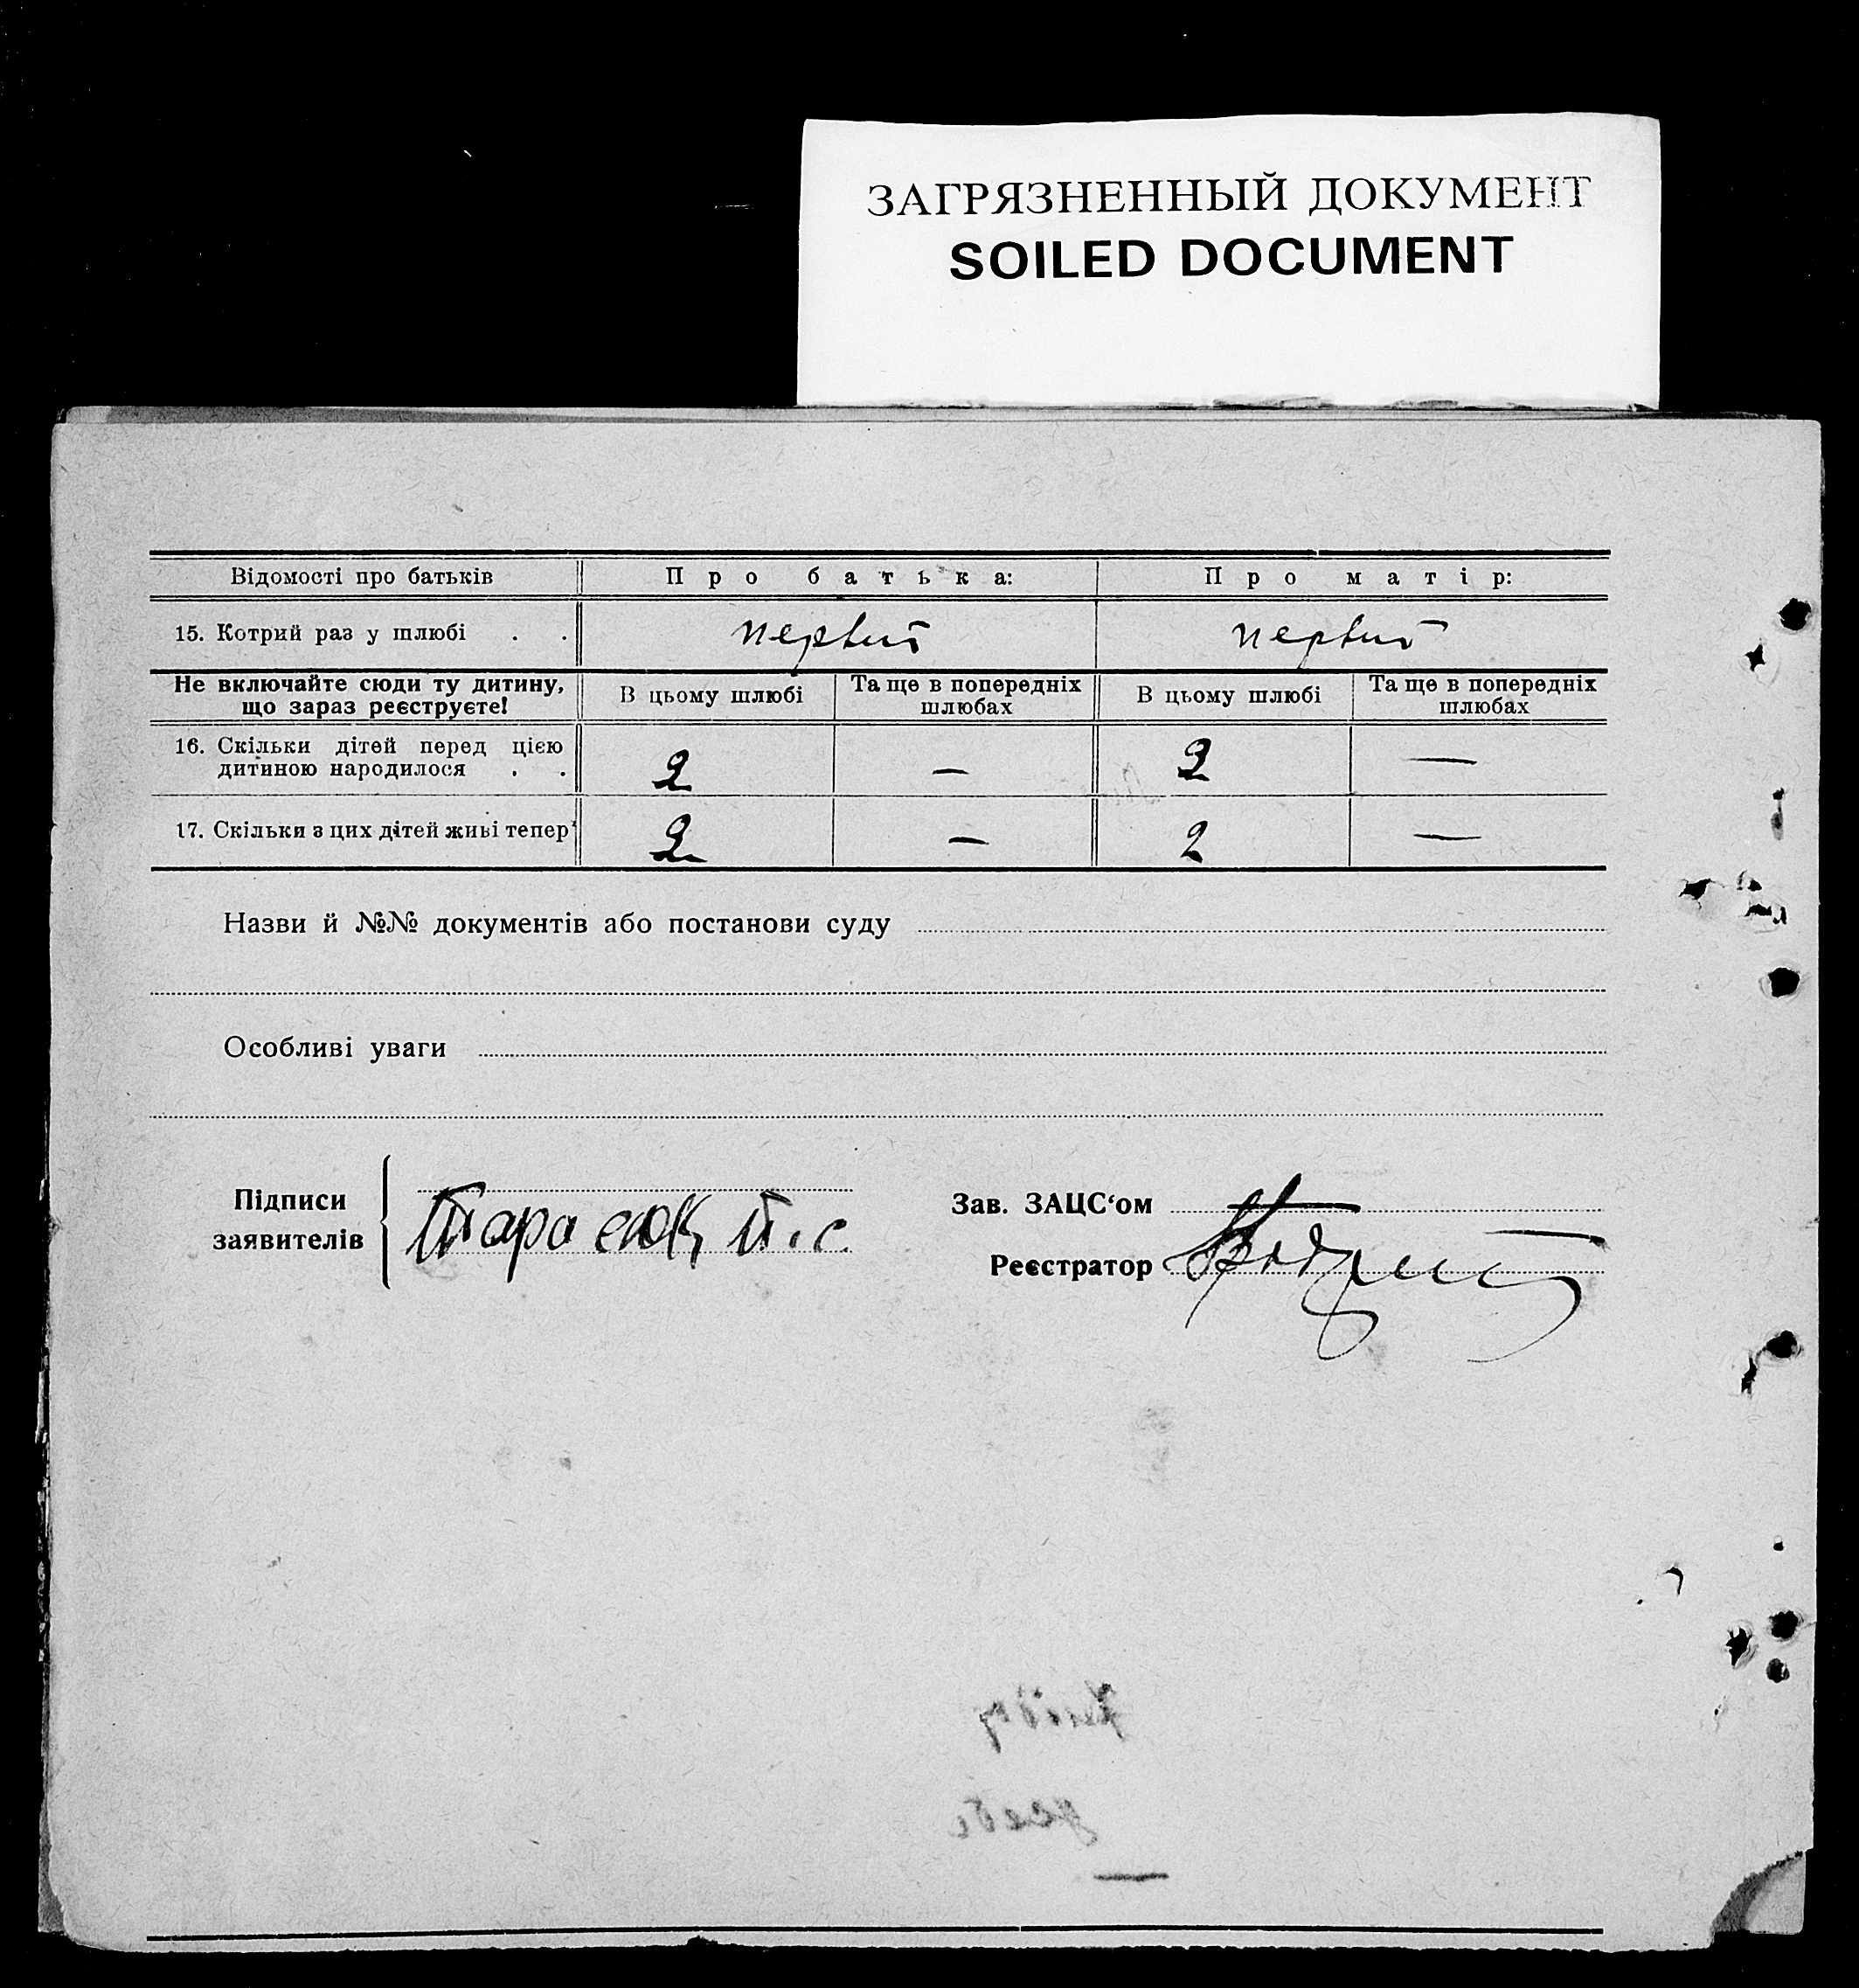 ЗАГРЯЗНЕННЫЙ ДОКУМЕНТ
SOILED DOCUMENT
Відомості про батьків Про батька: Про матір:
15. Котрий раз у шлюбі . . первий первий
Не включайте сюди ту дитину, що зараз реєструєте! В цьому шлюбі Та ще в попередніх шлюбах В цьому шлюбі Та ще в попередніх шлюбах
16. Скільки дітей перед цією
дитиною народилося . . 2 — 2 —
17. Скільки з цих дітей живі тепер 2 — 2 —
Назви й №№ документів або постанови суду
Особливі уваги
Підписи
заявителів
Тарасюк
Зав. ЗАЦС‘ом
Реєстратор